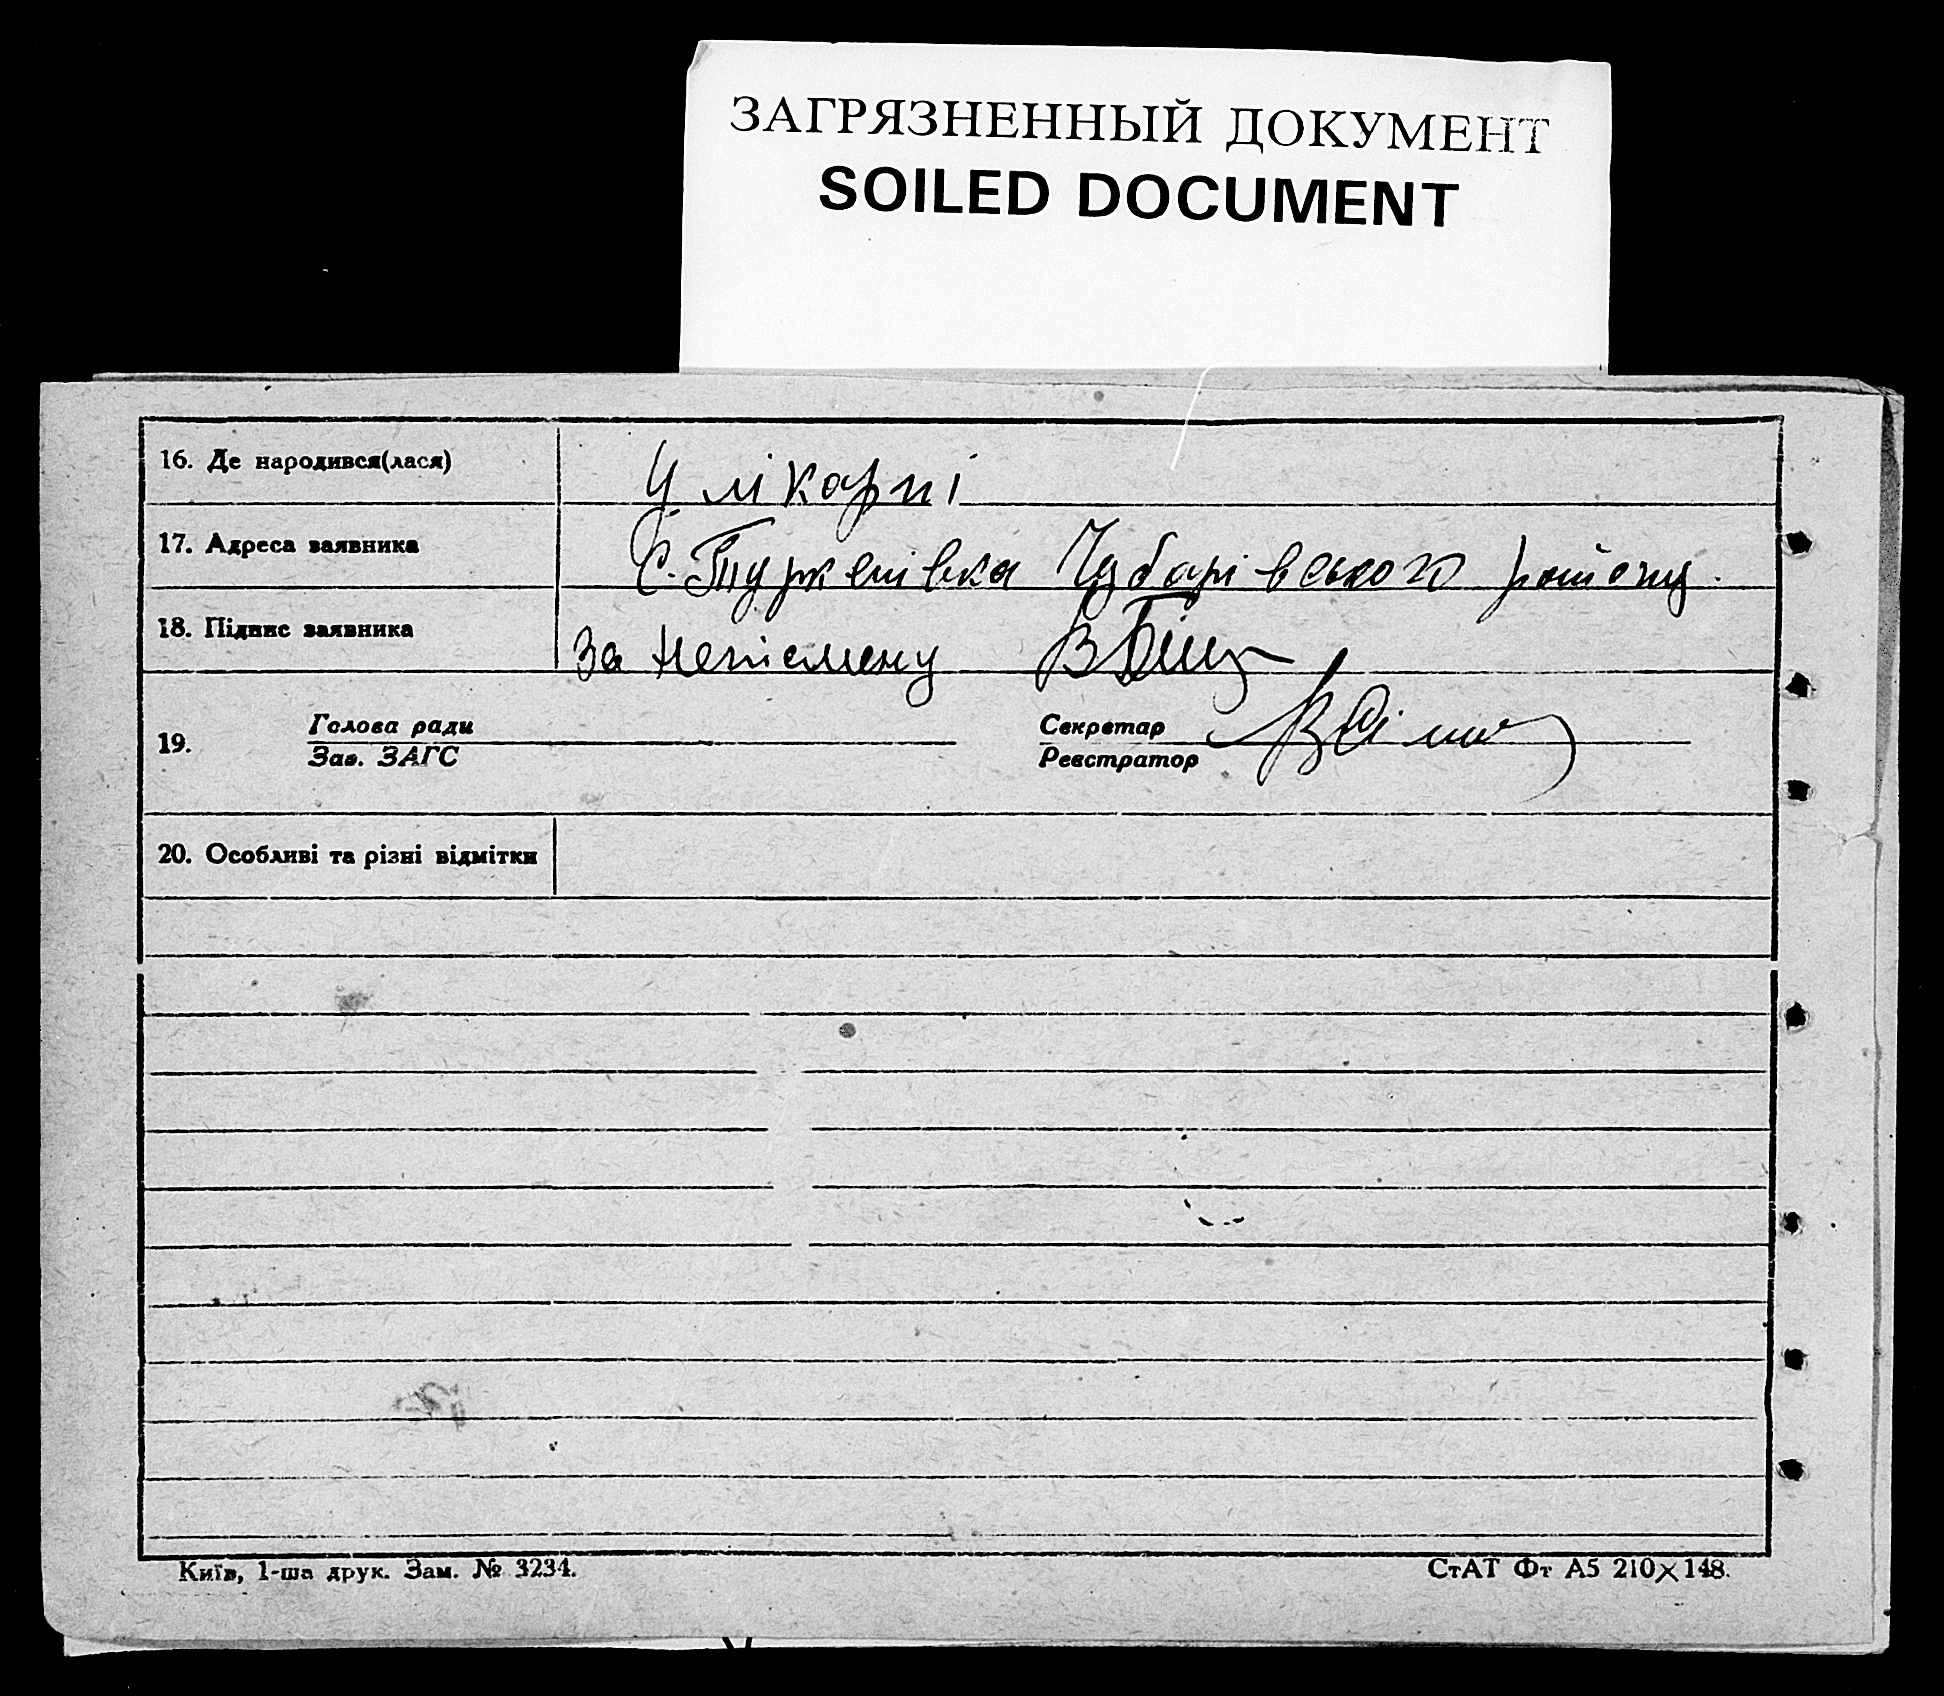 ЗАГРЯЗНЕННЫЙ ДОКУМЕНТ
SOILED DOCUMENT
16. Де народився(лася)
У лікарні
17. Адреса заявника
С. Туркенівка Чубарівського району.
18. Підпис заявника
за неписмену
19. Голова ради
Зав. ЗАГС
Секретар
Реєстратор
20. Особливі та різні відмітки
Київ, 1-ша друк. Зам. № 3234.
СтАТ Фт А5 210×148.